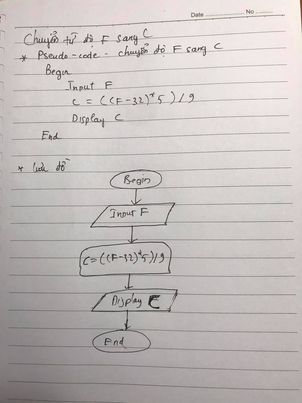 Date No
Chuyển từ độ F sang C
* Pseudo-code - chuyển độ F sang C
Begin
Input F
C = ((F-32)*5)/9
Display C
End
* Lưu đồ
Begin
Input F
C=((F-32)*5)/9
Display C
End